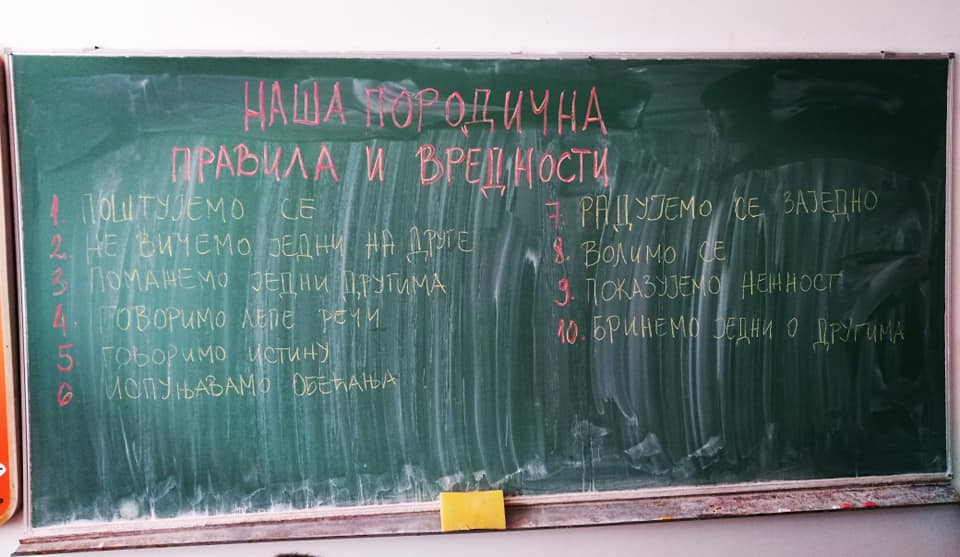 НАША ПОРОДИЧНА
ПРАВИЛА И ВРЕДНОСТИ
1. ПОШТУЈЕМО СЕ
2. НЕ ВИЧЕМО ЈЕДНИ НА ДРУГЕ
3. ПОМАЖЕМО ЈЕДНИ ДРУГИМА
4. ГОВОРИМО ЛЕПЕ РЕЧИ
5 ГОВОРИМО ИСТИНУ
6 ИСПУЊАВАМО ОБЕЋАЊА
7. РАДУЈЕМО СЕ ЗАЈЕДНО
8. ВОЛИМО СЕ
9. ПОКАЗУЈЕМО НЕЖНОСТ
10. БРИНЕМО ЈЕДНИ О ДРУГИМА